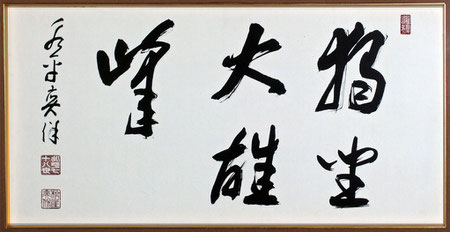 独坐
大雄
峰